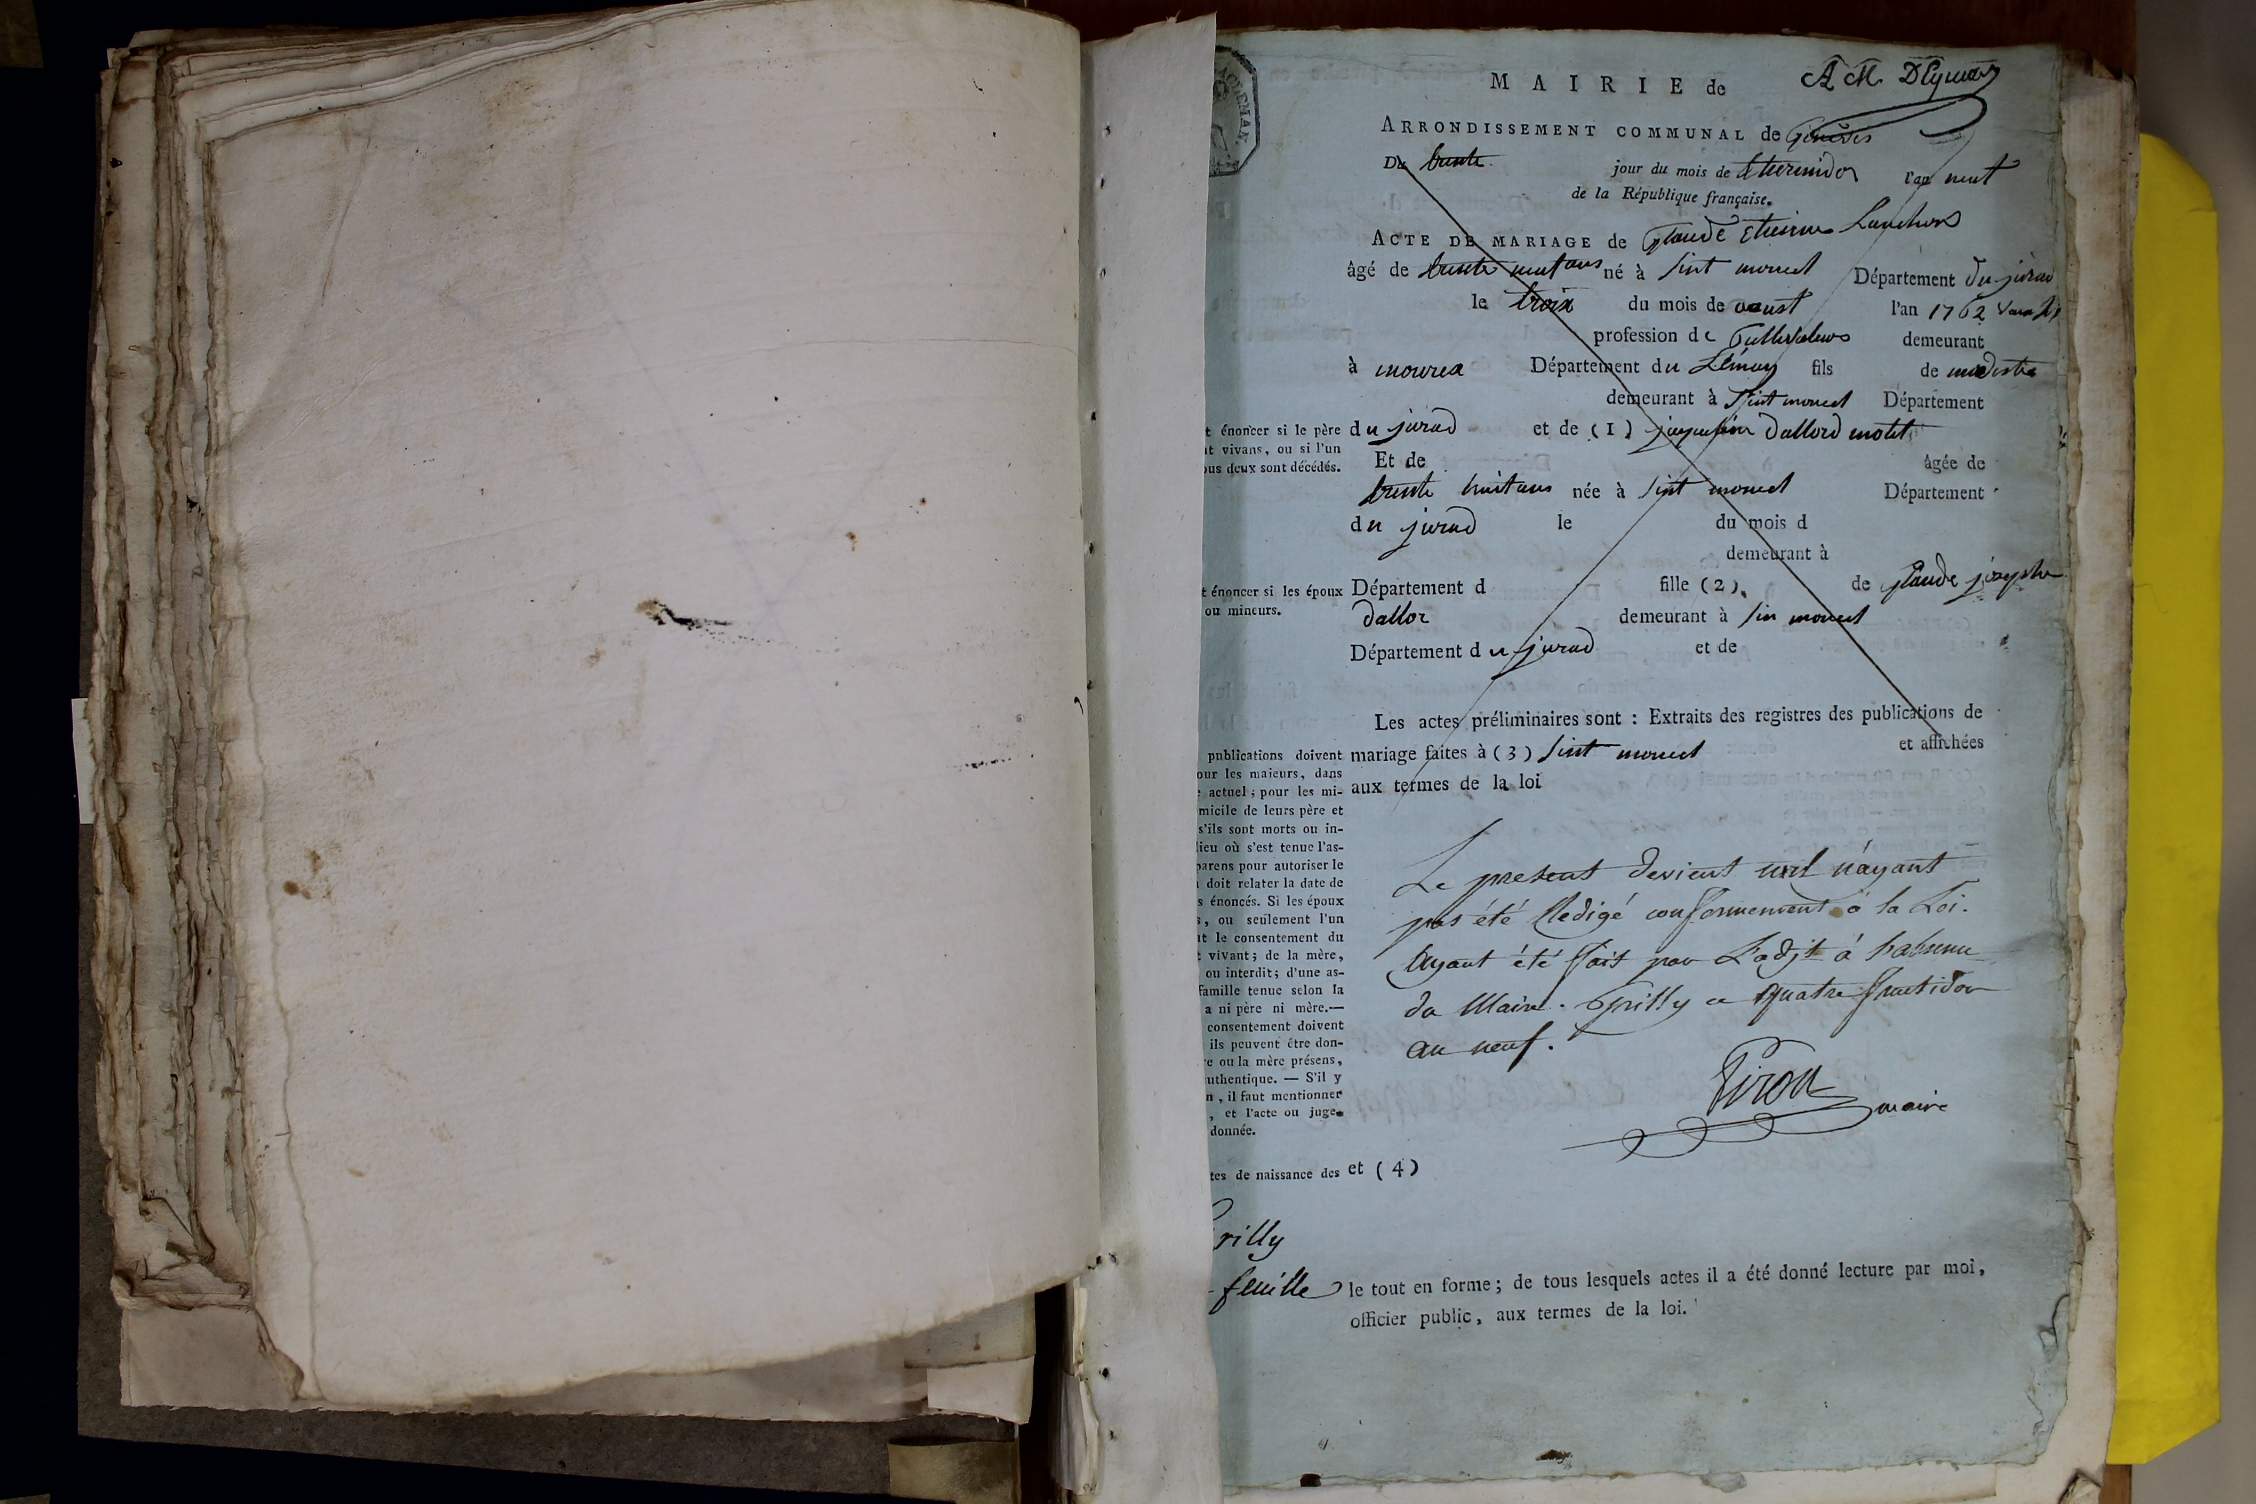 MAIRIE de
ARRONDISSEMENT COMMUNAL de Genève
Du trente jour du mois de thermidor l'an neuf
de la République française.
ACTE DE MARIAGE de Claude Etienne
âgé de trente neuf ans né à Sint moucel Département du jurad
le troix du mois de oaust l'an 1762
profession de demeurant
à mourex Département du Léman fils de modeste
demeurant à Sint moucel Département
t énoncer si le père
nt vivans, ou si l'un
ous deux sont décédés.
du jurad et de (1) dallod motet
Et de âgée de
trente huit ans née à Sint moucel Département
du jurad le du mois d
demeurant à
t énoncer si les époux
ou mineurs.
Département d fille (2) de Claude josephe
dalloz demeurant à Sin moucel
Département du jurad et de
Les actes préliminaires sont : Extraits des registres des publications de
mariage faites à (3) Sint moucel et affichées
aux termes de la loi
publications doivent
our les majeurs, dans
e actuel ; pour les mi-
micile de leurs père et
s'ils sont morts ou in-
lieu où s'est tenue l'as-
parens pour autoriser le
doit relater la date de
s énoncés. Si les époux
s, ou seulement l'un
nt le consentement du
t vivant ; de la mère,
ou interdit ; d'une as-
famille tenue selon la
a ni père ni mère.—
consentement doivent
ils peuvent être don-
re ou la mère présens,
uthentique. — S'il y
n, il faut mentionner
, et l'acte ou juge-
donnée.
Le present devient nul n'ayant
pas été Redigé conformement à la Loi.
Ayant été fait par L'adjt à l'absence
du Maire. Grilly ce quatre fructidor
an neuf.
Piron
maire
tes de naissance des
et (4)
Grilly
feuille
le tout en forme ; de tous lesquels actes il a été donné lecture par moi,
officier public, aux termes de la loi.